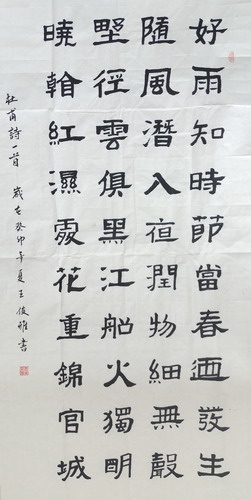 好雨知時節當春迺發生
隨風潛入夜潤物細無聲
墅徑雲俱黑江船火獨明
曉翰紅濕處花重錦官城
杜甫詩一首 歲在癸卯年夏王俊雅書